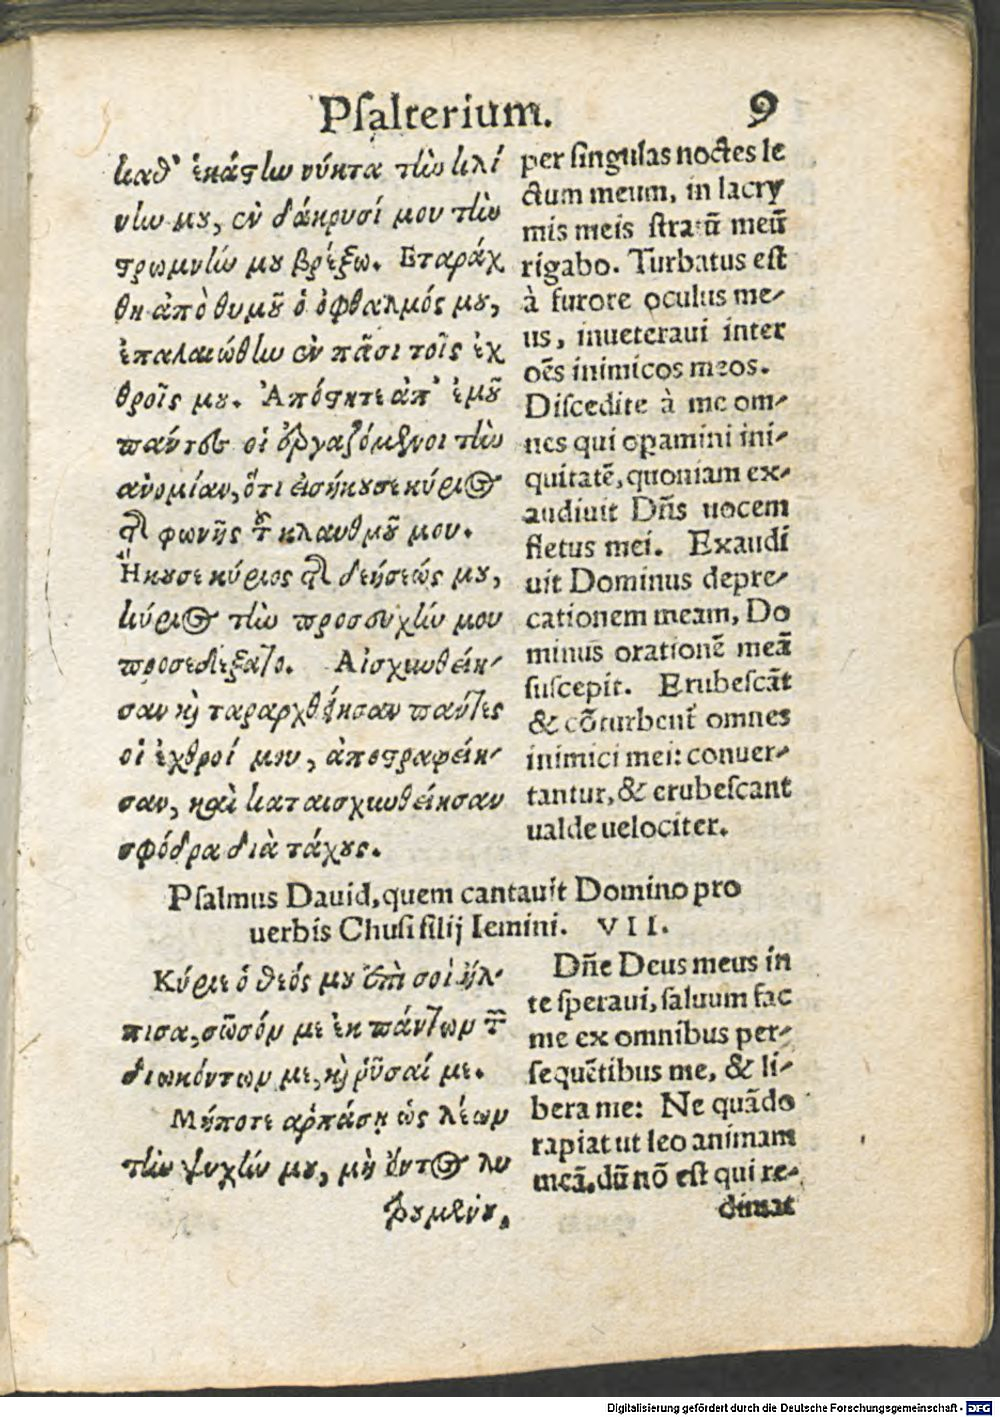 Psalterium. 9
καθ' ἑκάστην νύκτα τὴν κλί
νην μου, ἐν δάκρυσί μου τὴν
στρωμνήν μου βρέξω. Εταράχ
θη ἀπὸ θυμοῦ ὁ ὀφθαλμός μου,
ἐπαλαιώθην ἐν πᾶσι τοῖς ἐχ
θροῖς μου. Ἀπόστητε ἀπ' ἐμοῦ
πάντες οἱ ἐργαζόμενοι τὴν
ανομίαν, ὅτι εἰσήκουσε κύριος
τῆς φωνῆς τοῦ κλαυθμοῦ μου.
Ἤκουσε κύριος τῆς δεήσεώς μου,
κύριος τὴν προσευχήν μου
προσεδέξατο. Αἰσχυνθείη-
σαν καὶ ταραρχθείησαν πάντες
οἱ ἐχθροί μου, ἀποστραφείη-
σαν, καὶ καταισχυνθείησαν
σφόδρα διὰ τάχους.
per singulas noctes le
ctum meum, in lacry
mis meis stratū meū
rigabo. Turbatus est
à furore oculus me-
us, inueteraui inter
oēs inimicos meos.
Discedite à me om-
nes qui opamini ini-
quitatē, quoniam ex-
audiuit Dn̄s uocem
fletus mei. Exaudi
uit Dominus depre-
cationem meam, Do
minus orationē meā
suscepit. Erubescāt
& cōturbent omnes
inimici mei: conuer-
tantur, & erubescant
ualde uelociter.
Psalmus Dauid, quem cantauit Domino pro
uerbis Chusi filij Iemini. VII.
Κύριε ὁ θεός μου ἐπὶ σοὶ ἤλ-
πισα, σῶσόν με ἐκ πάντων τῶν
διωκόντων με, καὶ ῥῦσαί με.
Μήποτε αρπάσῃ ὡς λέων
τὴν ψυχήν μου, μὴ ὄντος λυ
τρουμένου,
Dn̄e Deus meus in
te speraui, saluum fac
me ex omnibus per-
sequētibus me, & li-
bera me: Ne quādo
rapiat ut leo animam
meā, dū nō est qui re-
dimat
Digitalisierung gefördert durch die Deutsche Forschungsgemeinschaft - DFG